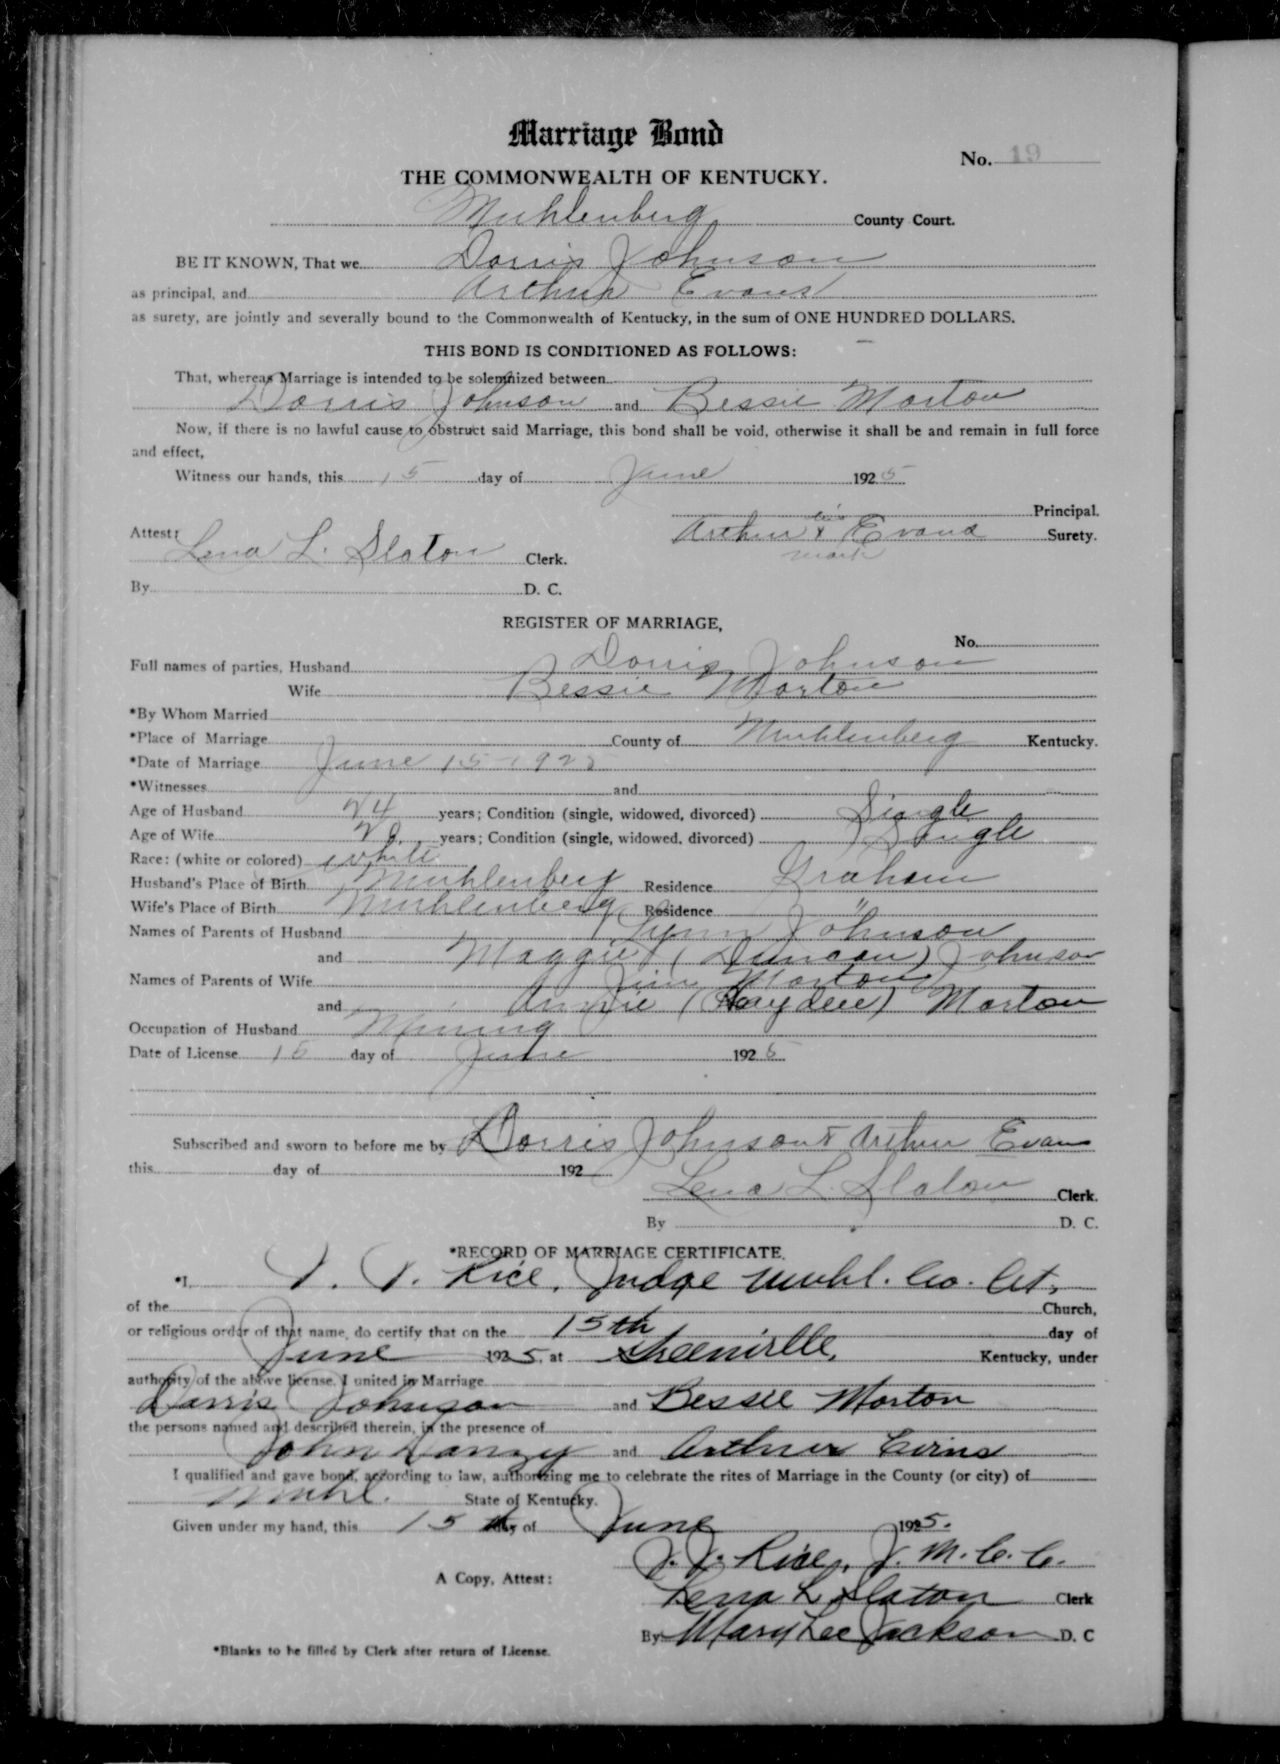 Marriage Bond
No. 19
THE COMMONWEALTH OF KENTUCKY.
Muhlenberg County Court.
BE IT KNOWN, That we Dorris Johnson
as principal, and Arthur Evans
as surety, are jointly and severally bound to the Commonwealth of Kentucky, in the sum of ONE HUNDRED DOLLARS.
THIS BOND IS CONDITIONED AS FOLLOWS:
That, whereas Marriage is intended to be solemnized between
Dorris Johnson and Bessie Morton
Now, if there is no lawful cause to obstruct said Marriage, this bond shall be void, otherwise it shall be and remain in full force
and effect,
Witness our hands, this 15 day of June 1925
Principal.
Attest: Arthur his x Evans Surety.
mark
Lena L. Slaton Clerk.
By D. C.
REGISTER OF MARRIAGE,
No.
Full names of parties, Husband Dorris Johnson
Wife Bessie Morton
*By Whom Married
*Place of Marriage County of Muhlenberg Kentucky.
*Date of Marriage June 15-1925
*Witnesses and
Age of Husband 24 years; Condition (single, widowed, divorced) Single
Age of Wife years; Condition (single, widowed, divorced) Single
Race: (white or colored) white
Husband's Place of Birth Muhlenberg Residence Graham
Wife's Place of Birth Muhlenberg Residence "
Names of Parents of Husband Lynn Johnson
and Maggie (Duncan) Johnson
Names of Parents of Wife Jim Morton
and Annie (Hayden) Morton
Occupation of Husband Mining
Date of License 15 day of June 1925
Subscribed and sworn to before me by Dorris Johnson & Arthur Evans
this day of 192
Lena L. Slaton Clerk.
By D. C.
*RECORD OF MARRIAGE CERTIFICATE.
*I, J. J. Rice, Judge Muhl. Co. Ct.
of the Church,
or religious order of that name, do certify that on the 15th day of
June 1925, at Greenville, Kentucky, under
authority of the above license, I united in Marriage
Dorris Johnson and Bessie Morton
the persons named and described therein, in the presence of
John and Arthur Evins
I qualified and gave bond, according to law, authorizing me to celebrate the rites of Marriage in the County (or city) of
Muhl. State of Kentucky.
Given under my hand, this 15th day of June 1925.
J. J. Rice, J. M. C. C.
A Copy, Attest:
Lena L Slaton Clerk
By Mary Lee Jackson D. C
*Blanks to be filled by Clerk after return of License.